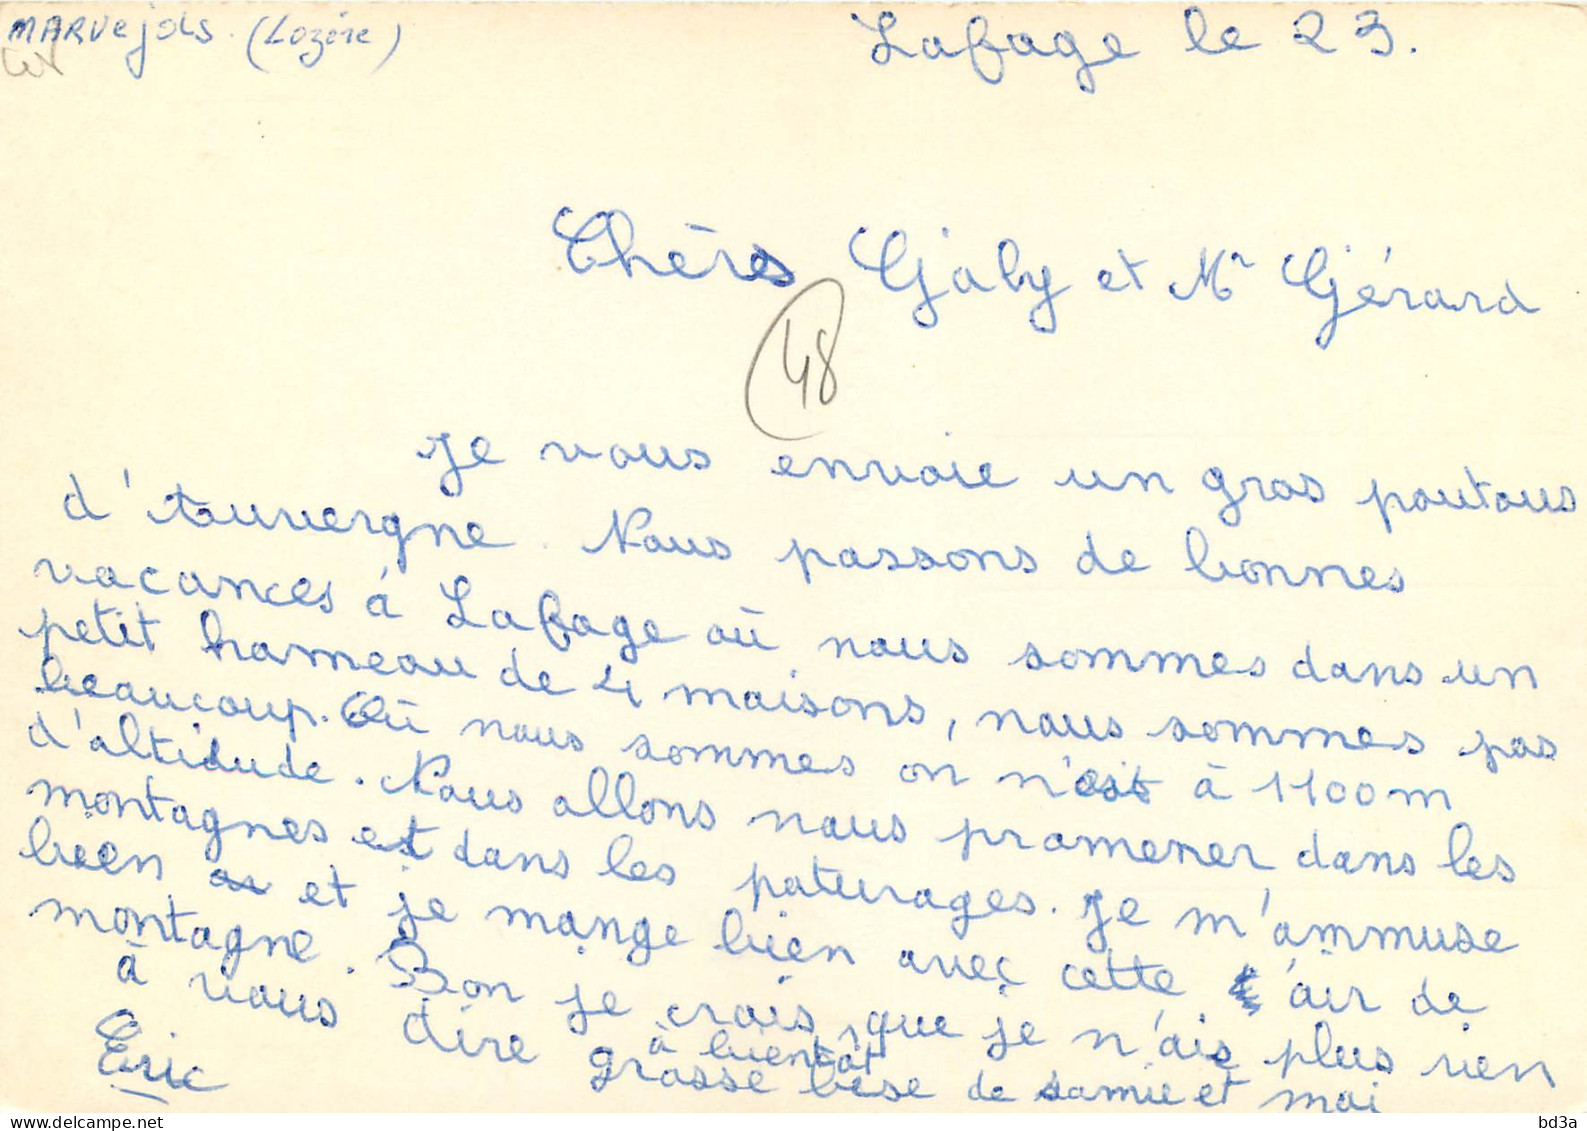 MARVEjols. (Lozère)
Lafage le 23.
Chères Gaby et Mr Gérard
48
Je vous envoie un gros poutous
d'Auvergne. Nous passons de bonnes
vacances à Lafage où nous sommes dans un
petit hameau de 4 maisons, nous sommes pas
beaucoup. Où nous sommes on n'est à 1100m
d'altidude. Nous allons nous promener dans les
montagnes et dans les paturages. Je m'ammuse
bien et je mange bien avec cette air de
montagne. Bon je crois que je n'ais plus rien
à vous dire à bientôt
grosse bése de samie et moi
Eric
bd3a